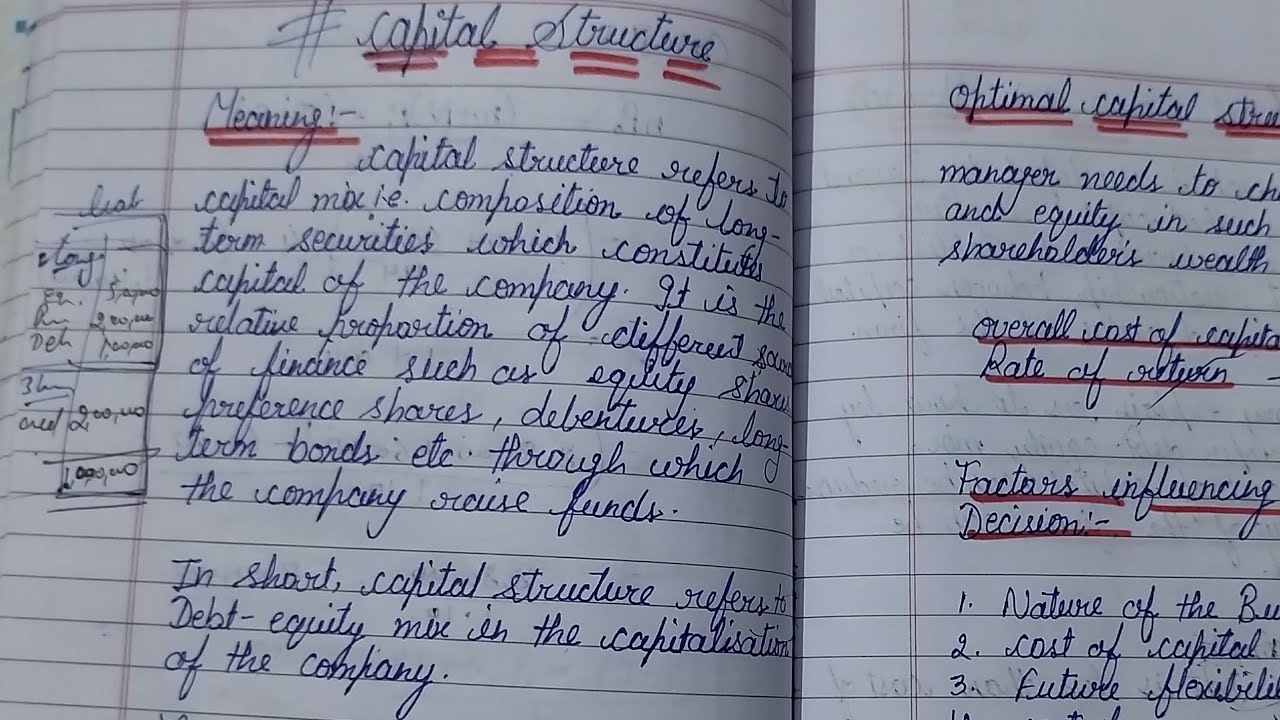 # Capital Structure
Meaning:-
capital structure refers to
capital mix i.e. composition of long-
term securities which constitutes
capital of the company. It is the
relative proportion of different
of finance such as equity share
preference shares, debentures, long-
term bonds etc. through which
the company raise funds.
In short, capital structure refers to
Debt-equity mix in the capitalisation
of the company.
Long
Deb
2,00,000
optimal capital
manager needs to
and equity in such
shareholder's wealth
overall cost of
Rate of return
Factors influencing
Decision:-
1. Nature of the
2. cost of capital
3. Future